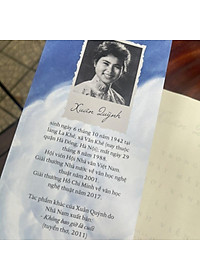 Xuân Quỳnh
sinh ngày 6 tháng 10 năm 1942 tại
làng La Khê, xã Văn Khê (nay thuộc
quận Hà Đông, Hà Nội), mất ngày 29
tháng 8 năm 1988.
Hội viên Hội Nhà văn Việt Nam.
Giải thưởng Nhà nước về văn học nghệ
thuật năm 2001.
Giải thưởng Hồ Chí Minh về văn học
nghệ thuật năm 2017.
Tác phẩm khác của Xuân Quỳnh do
Nhã Nam xuất bản:
Không bao giờ là cuối
(tuyển thơ, 2011)